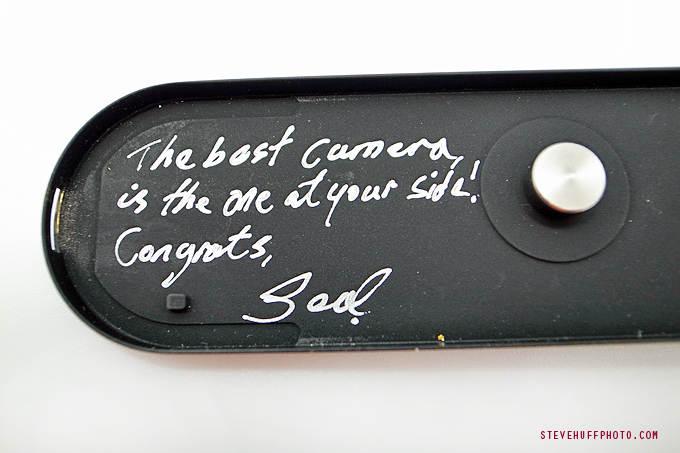 The best camera,
is the one at your side!
Congrats,
Seal
STEVEHUFFPHOTO.COM